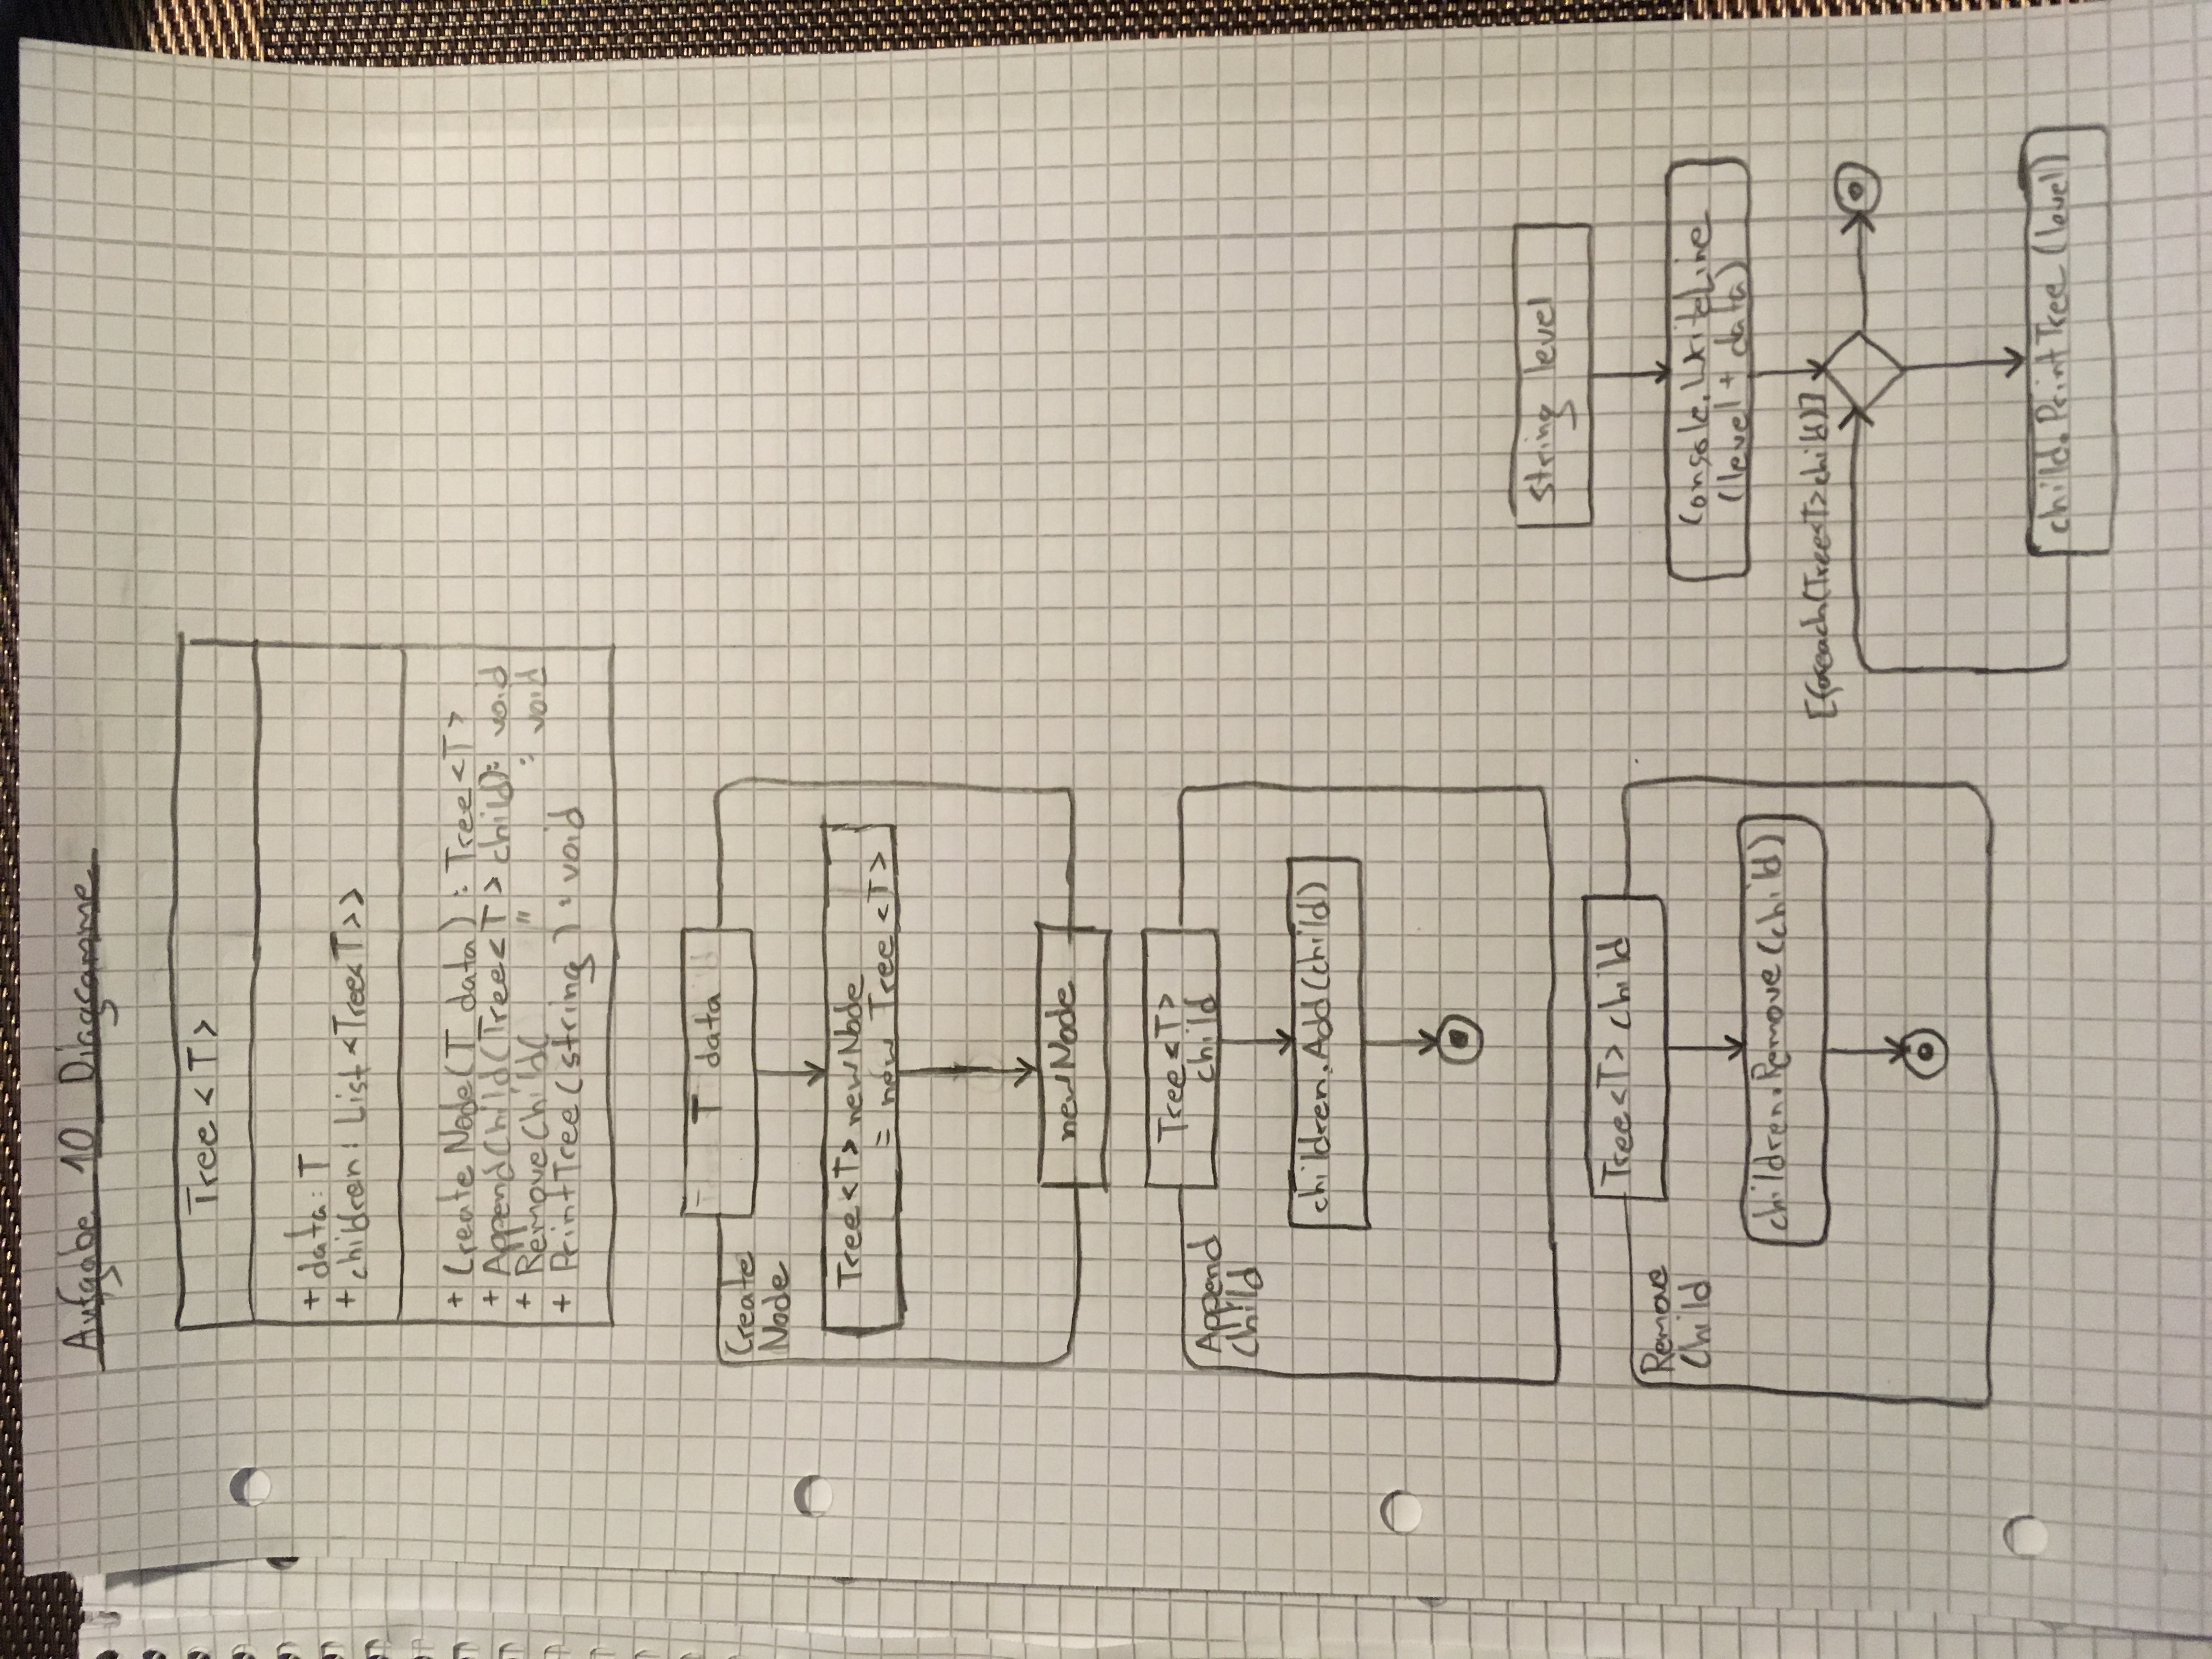 Aufgabe 10 Diagramme
Tree<T>
+ data: T
+ children: List<Tree<T>>
+ CreateNode(T data) : Tree<T>
+ AppendChild(Tree<T> child): void
+ RemoveChild( " : void
+ PrintTree(string ) : void
T data
Create
Node
Tree<T> newNode
= new Tree<T>
newNode
Tree<T>
child
Append
Child
children.Add(child)
Tree<T> child
Remove
Child
children.Remove(child)
string level
Console.WriteLine
(level + data)
[foreach(Tree<T> child)]
child.PrintTree(level)